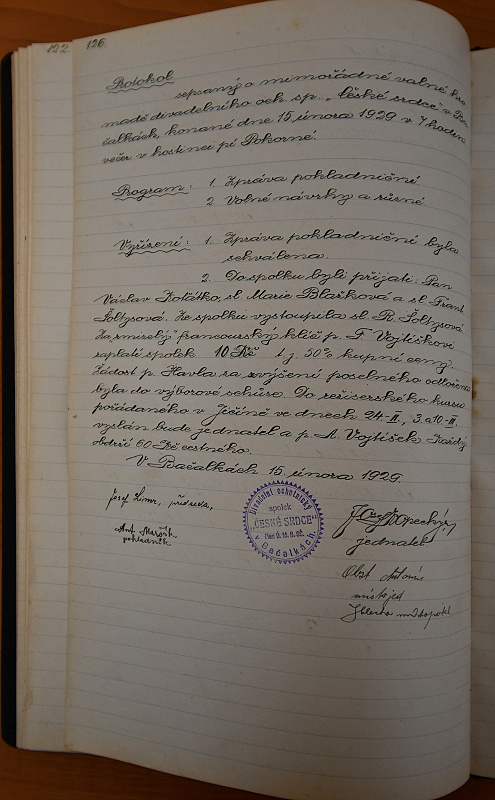 122. 126.
Protokol
sepsaný o mimořádné valné hro
madě divadelního och. sp. „České srdce" v Ba
čalkách, konané dne 15. února 1929 v 7 hodin
večer v hostinci pí Pokorné.
Program: 1. Zpráva pokladniční.
2. Volné návrhy a různé.
Vyřízení: 1. Zpráva pokladniční byla
schválena.
2. Do spolku byli přijati: Pan
Václav Kořátko, sl. Marie Blašková a sl. Frant.
Šoltysová. Ze spolku vystoupila sl. R. Šoltysová.
Za francouzský klíč p. F. Vojtíškovi
zaplatí spolek 10 Kč t.j. 50% kupní ceny.
Žádost p. Havla za zvýšení poselného
byla do výborové schůze. Do režisérského kursu
pořádaného v Jičíně ve dnech 24-II, 3. a 10-III.
vyslán bude jednatel a p. A. Vojtíšek. Každý
obdrží 60 Kč cestného.
V Bačalkách 15. února 1929.
Josef předseda,
Ant.
pokladník
Divadelní ochotnický
spolek
„ČESKÉ SRDCE"
v Bačalkách
Jos. Kopecký
jednatel
Obst Antonín
místojed